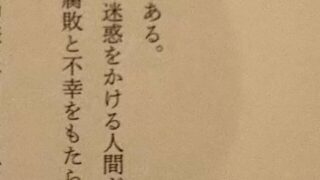 ある。
迷惑をかける人間が
腐敗と不幸をもたら